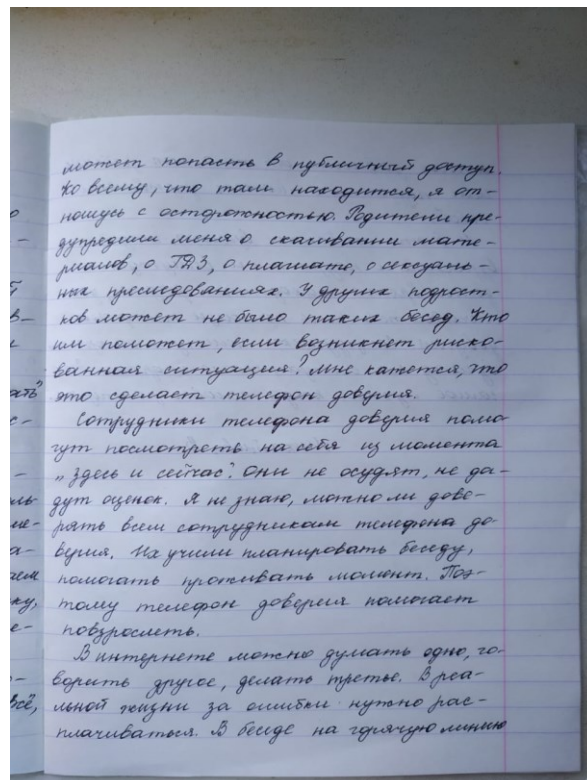 может попасть в публичный доступ.
Ко всему, что там находится, я от-
ношусь с осторожностью. Родители пре-
дупредили меня о скачивании мате-
риалов, о ГДЗ, о плагиате, о сексуаль-
ных преследованиях. У других подрост-
ков может не было таких бесед. Кто
им поможет, если возникнет риско-
ванная ситуация? Мне кажется, что
это сделает телефон доверия.
Сотрудники телефона доверия помо-
гут посмотреть на себя из момента
„здесь и сейчас". Они не осудят, не да-
дут оценок. Я не знаю, можно ли дове-
рять всем сотрудникам телефона до-
верия. Их учили планировать беседу,
помогать проживать момент. Поэ-
тому телефон доверия помогает
повзрослеть.
В интернете можно думать одно, го-
ворить другое, делать третье. В реа-
льной жизни за ошибки нужно рас-
плачиваться. В беседе на горячую линию